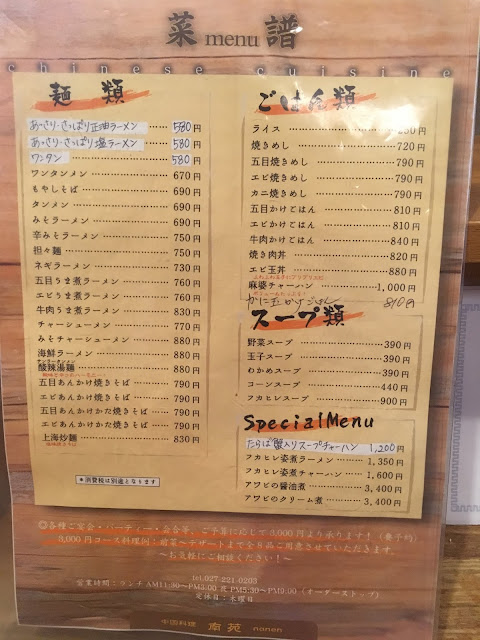 菜 menu 譜
chinese cuisine
麺類
あっさり・さっぱり正油ラーメン …… 580円
あっさり・さっぱり塩ラーメン …… 580円
ワンタン …… 580円
ワンタンメン …… 670円
もやしそば …… 690円
タンメン …… 690円
みそラーメン …… 690円
辛みそラーメン …… 750円
担々麺 …… 750円
ネギラーメン …… 730円
五目うま煮ラーメン …… 760円
エビうま煮ラーメン …… 760円
牛肉うま煮ラーメン …… 830円
チャーシューメン …… 770円
ネギチャーシューメン …… 880円
海鮮ラーメン …… 880円
サンラータンメン
酸辣湯麺 …… 880円
五目あんかけ焼きそば …… 790円
エビあんかけ焼きそば …… 790円
五目あんかけかた焼きそば … 790円
エビあんかけかた焼きそば … 790円
上海炒麺 …… 830円
＊消費税は別途となります
ごはん類
ライス …… 230円
焼きめし …… 720円
五目焼きめし …… 790円
エビ焼きめし …… 790円
カニ焼きめし …… 790円
五目かけごはん …… 810円
エビかけごはん …… 810円
牛肉かけごはん …… 840円
焼き肉丼 …… 820円
エビ玉丼 …… 880円
麻婆チャーハン …… 1,000円
かに玉かけごはん 810円
スープ類
野菜スープ …… 390円
玉子スープ …… 390円
わかめスープ …… 390円
コーンスープ …… 440円
フカヒレスープ …… 900円
SpecialMenu
たらば蟹入りスープチャーハン 1,200円
フカヒレ姿煮ラーメン …… 1,350円
フカヒレ姿煮チャーハン …… 1,600円
アワビの醤油煮 …… 3,400円
アワビのクリーム煮 …… 3,400円
◎各種ご宴会・パーティー・会合等、ご予算に応じて3,000円より承ります！（要予約）
3,000円コース料理例！前菜〜デザートまで全8品ご用意させていただきます。
〜お気軽にご相談ください！〜
tel.027-221-0203
営業時間：ランチ AM11:30〜PM3:00 夜 PM5:30〜PM9:00（オーダーストップ）
定休日：木曜日
中国料理 南苑 -nanen